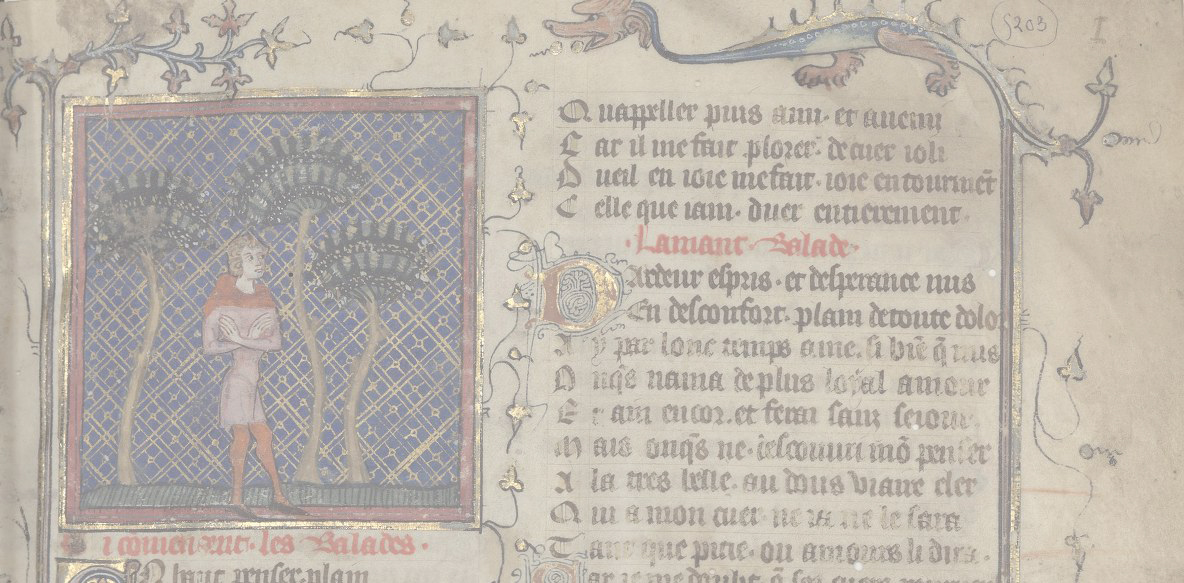 5203
I
Q uappeller puis ami. et anemi
C ar il me fait plorer. de cuer ioli
D ueil en ioie me fait. ioie en tourmēt
C elle que iam. du cuer entierement.
Lamant. Balade.
D Ardeur espris. et desperance nus
En desconfort. plain de toute dolo
A y par lonc temps ame. si biē q̄ nus
O nq̄s nama de plus loyal amour
E t aim encor. et ferai sanz seiour
M ais onq̄s ne descouuri mō penser
A la tres belle. au dous viaire cler
Q ui a mon cuer ne ia ne le sara
T ant que pitie. ou amours li dira.
i comencent. les Balades.
plain
ar ie me doubt. q̄ ses cuers